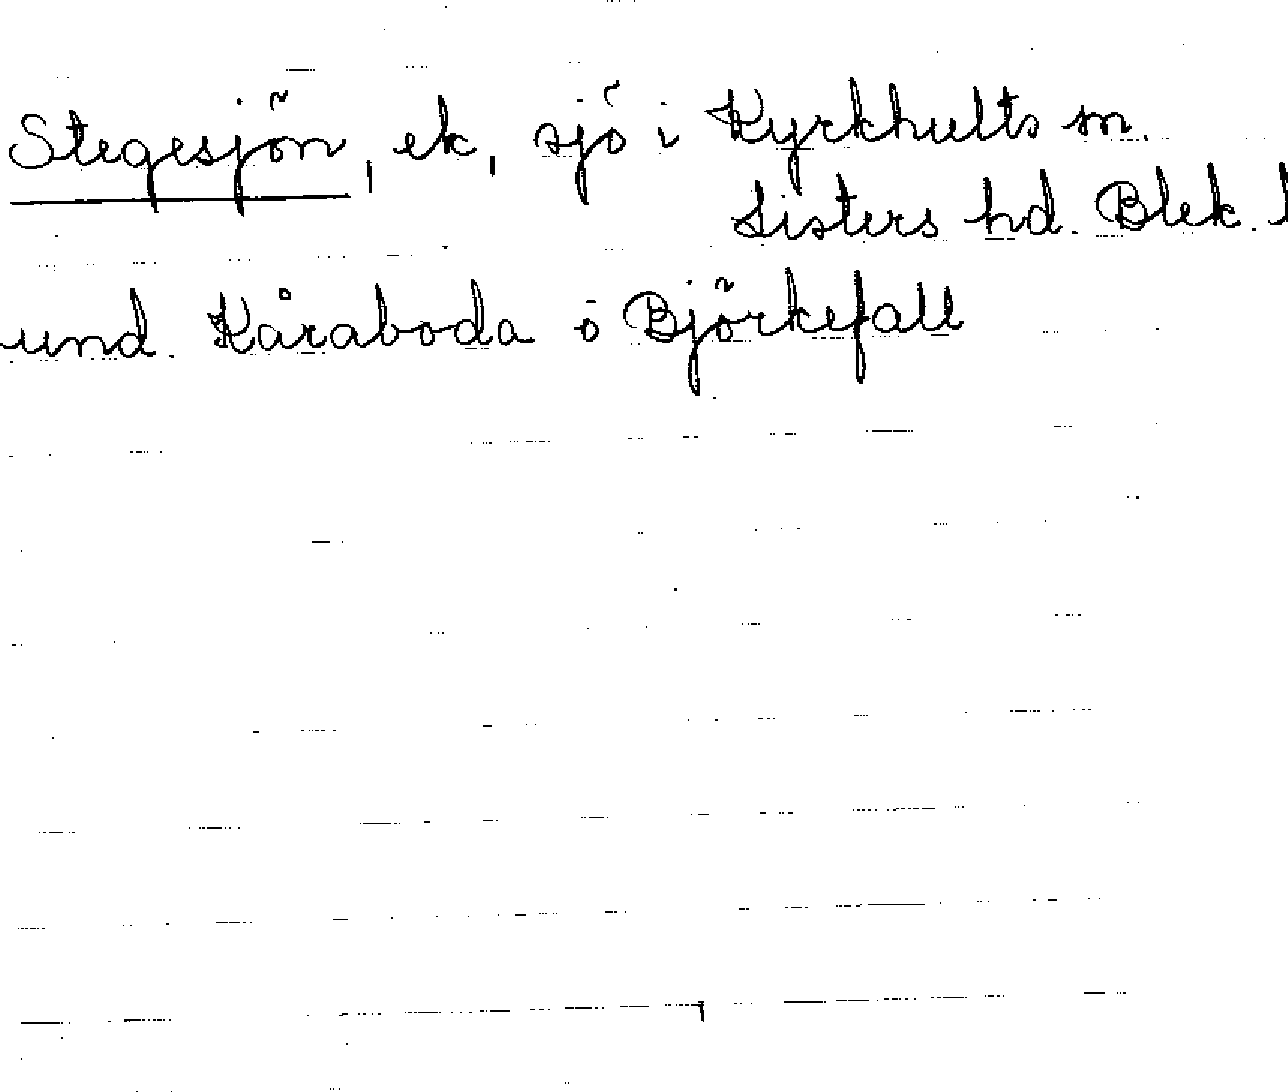 Stegesjön, ek, sjö i Kyrkhults sn.
Listers hd. Blek. l
und. Kåraboda o Björkefall